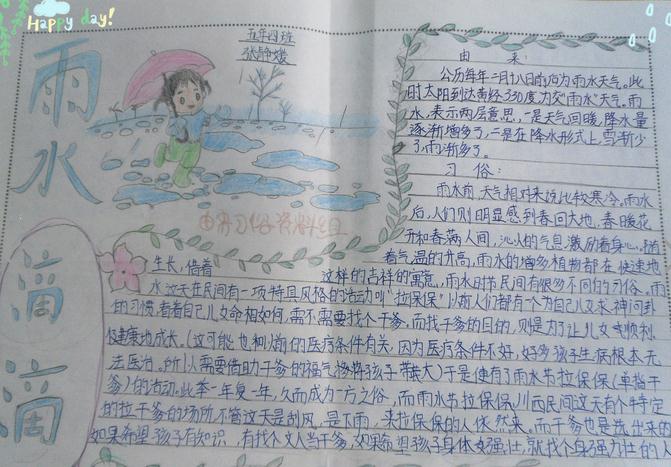 Happy day!
五年四班
张静媛
雨
水
滴
滴
由 来:
公历每年二月十八日前后为雨水天气。此
时太阳到达黄经330度,为交"雨水"天气。雨
水,表示两层意思,一是天气回暖,降水量
逐渐增多了,二是在降水形式上,雪渐少
了,雨渐多了。
习 俗:
雨水前,天气相对来说比较寒冷。雨水
后,人们则明显感到春回大地,春暖花
开和春满人间,沁人的气息激励着身心。随
着气温的升高,雨水的增多植物都在快速地
生长,借着
这样的吉祥的寓意,雨水时节民间有很多不同的习俗,雨
水这天在民间有一项特具风格的活动叫"拉保保"以前人们都有个为自己儿女求神问卦
的习惯,看看自己儿女命相如何,需不需要找个干爹。而找干爹的目的,则是为了让儿女顺利,
健康地成长。(这可能也和以前的医疗条件有关,因为医疗条件不好,好多孩子生病根本无
法医治。所以需要借助干爹的福气
将孩子带大)于是便有了雨水节拉保保(单指干
爹)的活动。此举一年复一年,久而成为一方之俗,而雨水节拉保保,川西民间这天有个特定
的拉干爹的场所不管这天是刮风,是下雨,来拉保保的人依然来。而干爹也是选出来的
如果希望孩子有知识,有找个文人当干爹,如果希望孩子身体强壮,就找个身强力壮的人